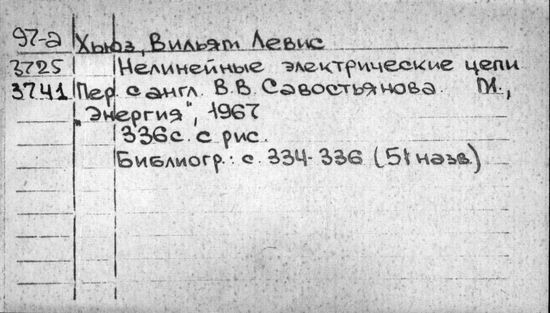 97-а Хьюз, Вильям Левис
3725 Нелинейные электрические цепи
3741 Пер. с англ. В.В. Савостьянова. М.,
„Энергия", 1967
336 с. с рис.
Библиогр.: с. 334-336 (51 назв.)